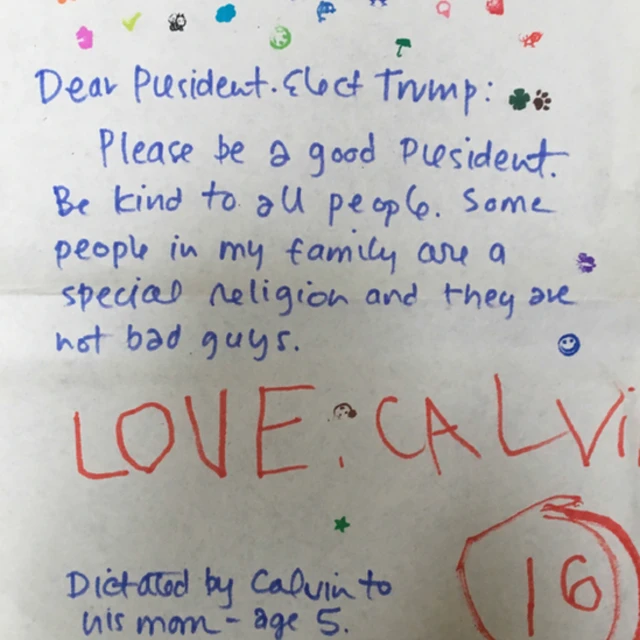 Dear President-Elect Trump:
Please be a good President.
Be kind to all people. Some
people in my family are a
special religion and they are
not bad guys.
LOVE, CALVI
16
Dictated by Calvin to
his mom - age 5.